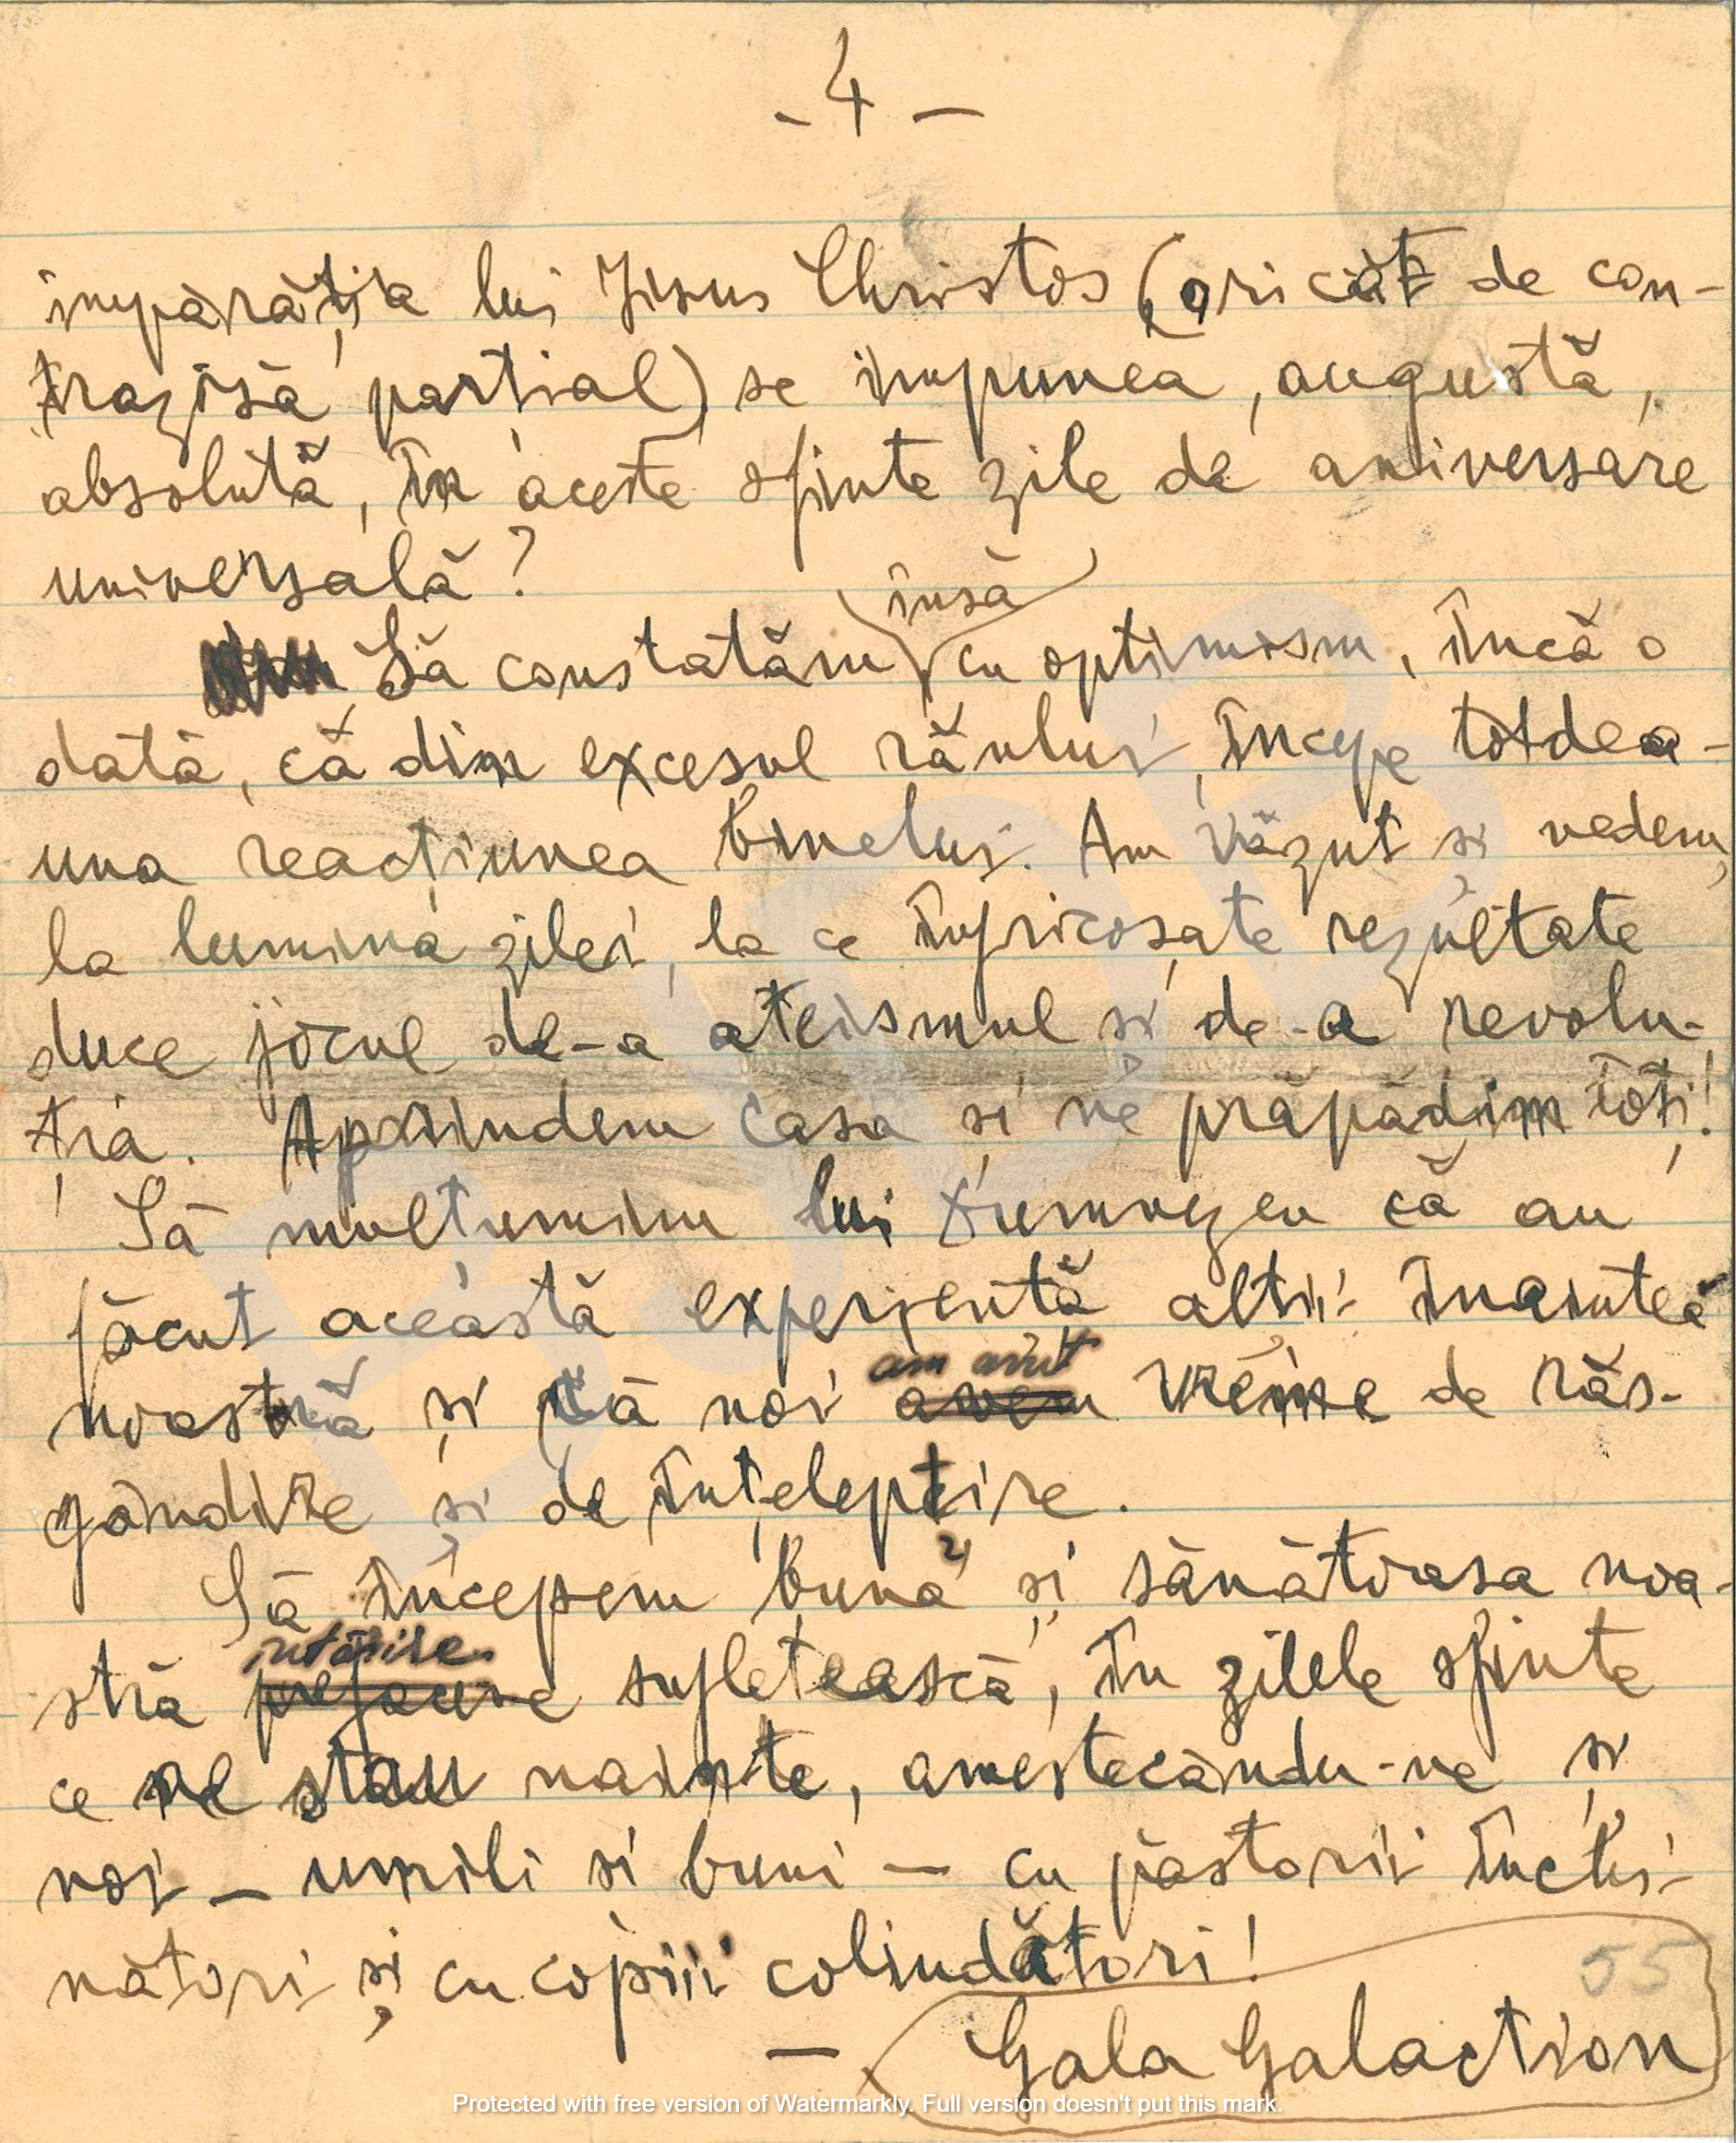 - 4 -
împărăția lui Iisus Christos (oricât de con-
trazisă parțial) se impunea, augustă,
absolută, în aceste sfinte zile de aniversare
universală?
însă
Să constatăm cu optimism, încă o
dată, că din excesul răului, începe totdea-
una reacțiunea binelui. Am văzut și vedem,
la lumina zilei, la ce înfricoșate rezultate
duce jocul de-a ateismul și de-a revolu-
ția. Aprindem casa și ne prăpădim toți!
Să mulțumim lui Dumnezeu că au
făcut această experiență alții înaintea
am avut
noastră și că noi avem vreme de răs-
gândire și de înțelepțire.
Să începem buna și sănătoasa noa-
intărire
stră prefacere sufletească, în zilele sfinte
ce ne stau nainte, amestecându-ne și
noi - umili si buni - cu păstorii închi-
nători și cu copiii colindători!
55
- Gala Galaction
BJDB
Protected with free version of Watermarkly. Full version doesn't put this mark.